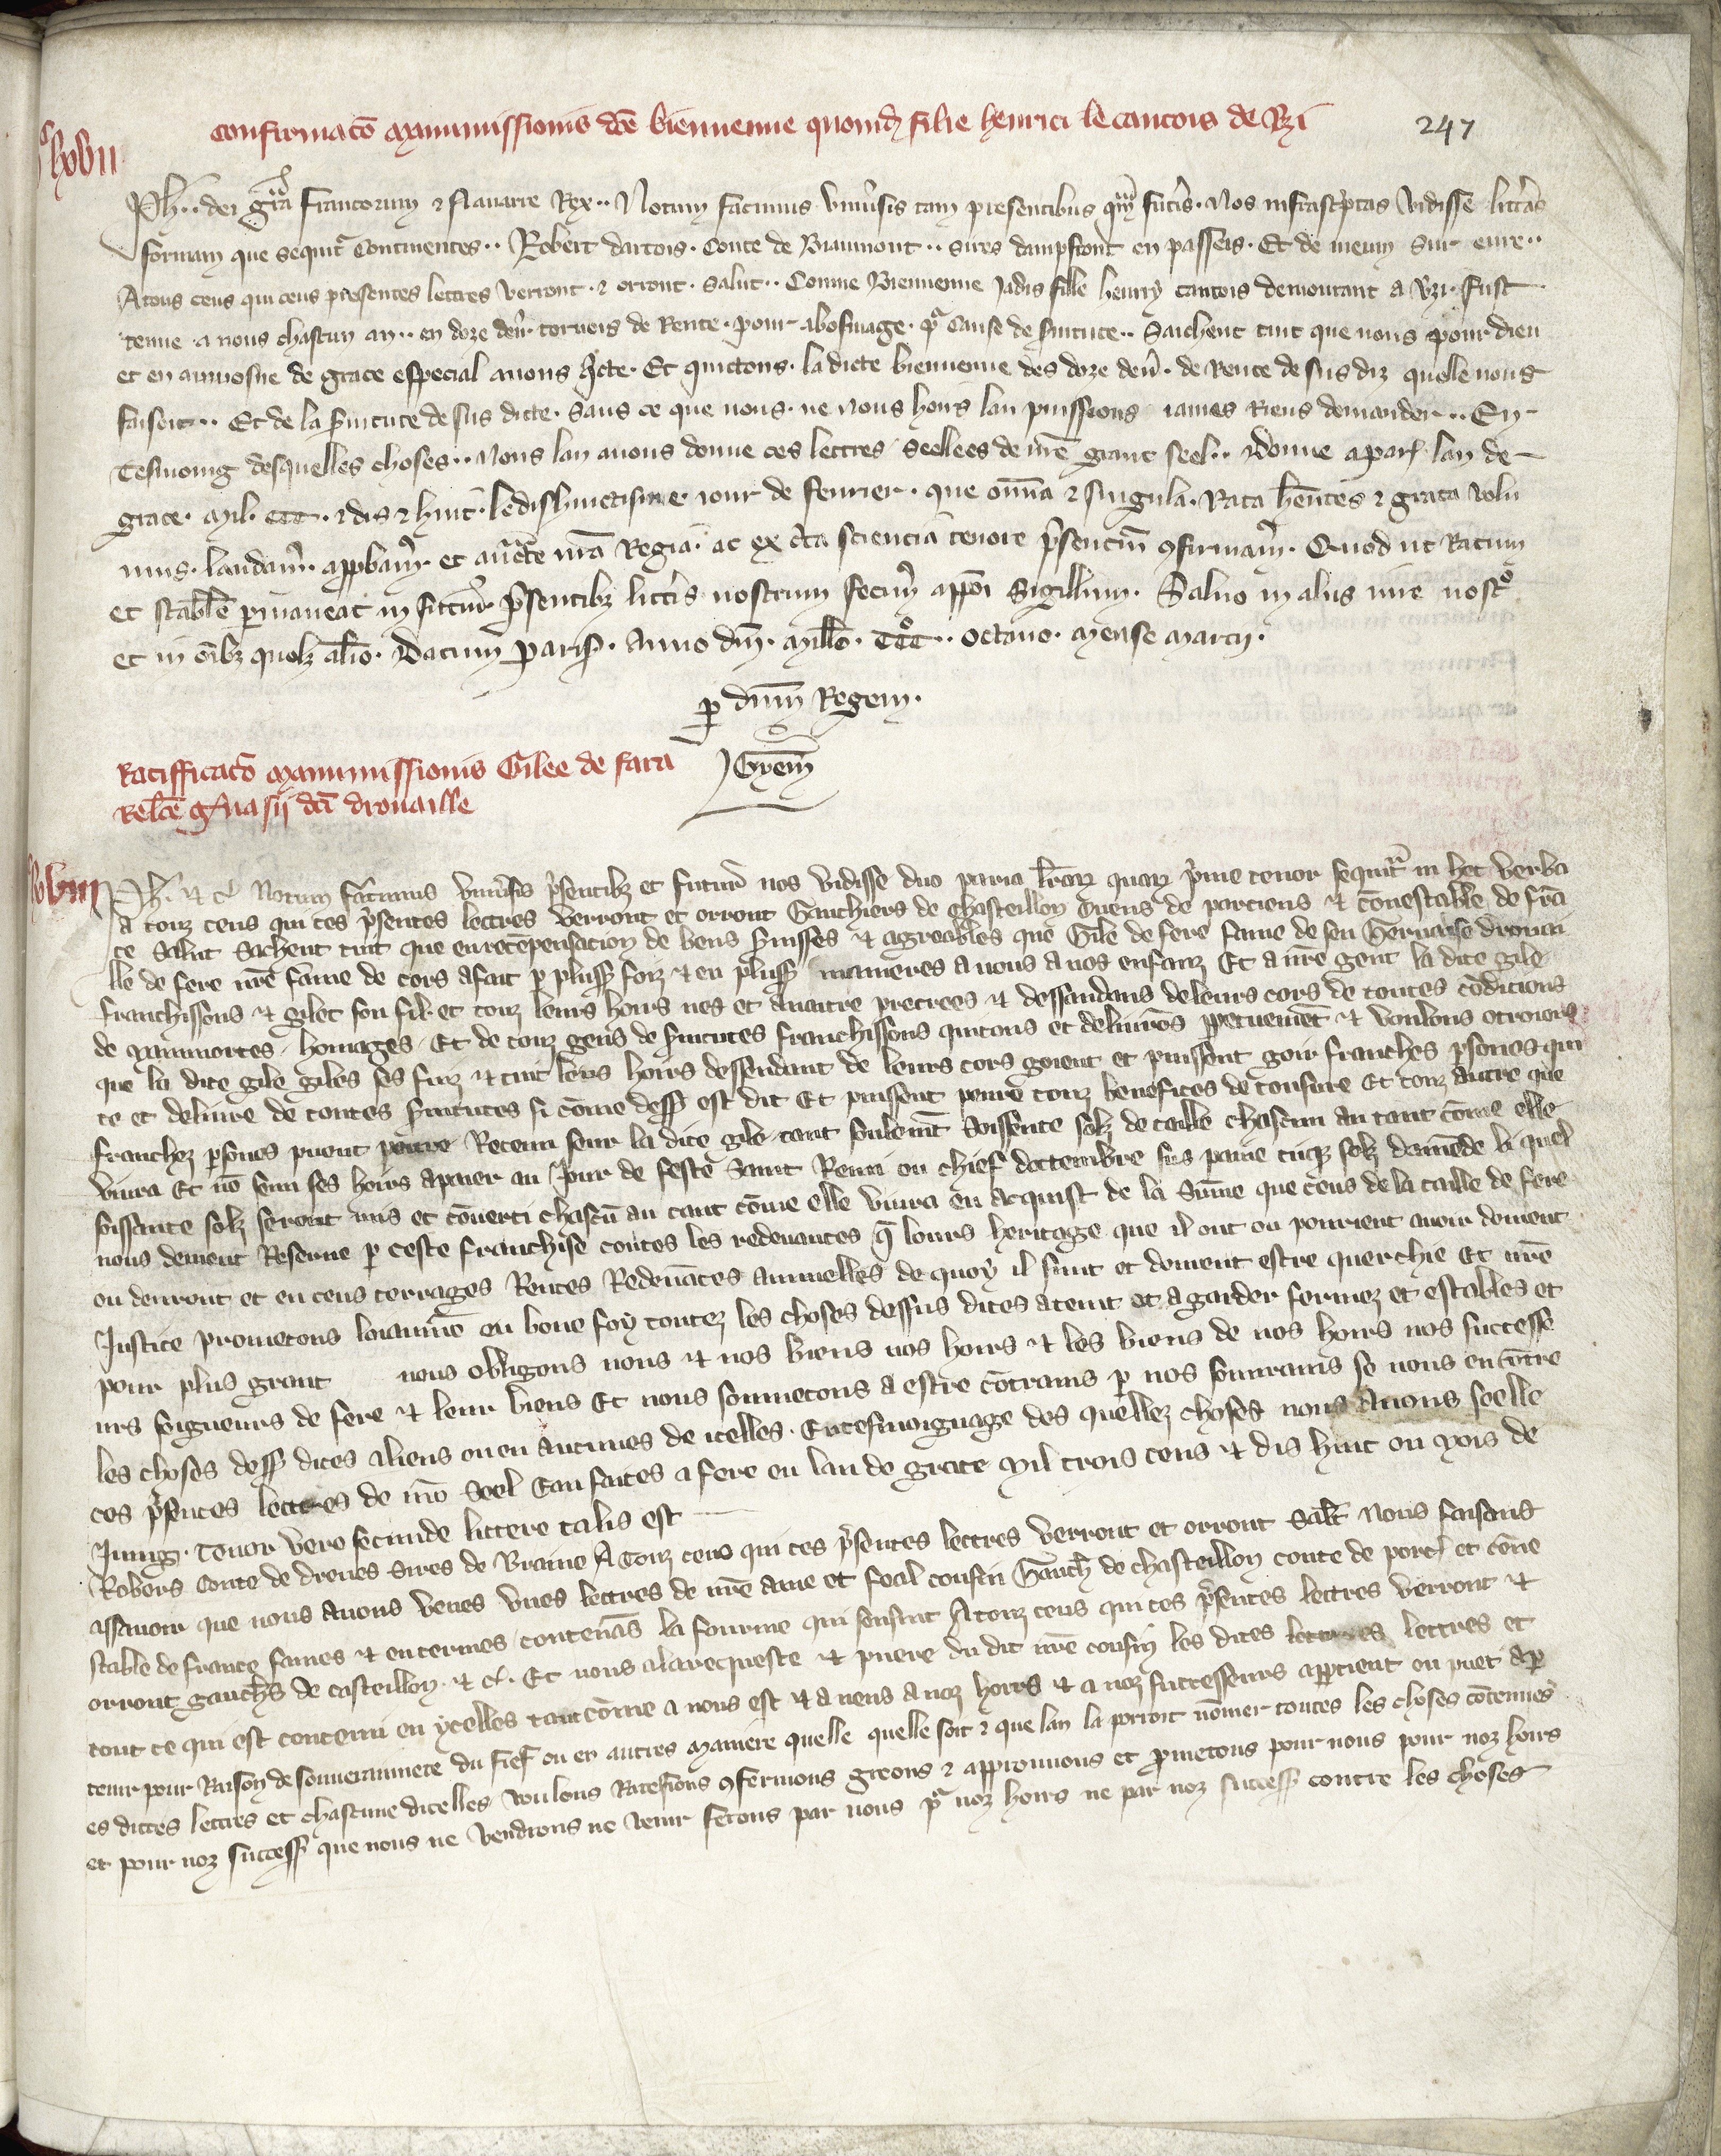 Confirmatio manumissionis dce bienvenue quondam filie henrici le cancois de Vzi
247
Ph. dei gra Francorum et Navarre Rex. Notum facimus universis tam presentibus quam futuris. Nos infrascriptas vidisse litteras
formam que sequitur continentes. Robert dartois. Conte de Biaumont. sires dampfront en passeis. Et de meun sur eure.
A tous ceus qui ceus presentes lettres verront. et orront. salut. Comme Bienvenue Jadis fille henry cancois demourant a Vzi. fust
tenue a nous chascun an. en doze den. tornois de Rente. pour abosnage. pr cause de servitute. Saichent tuit que nous pour dieu
et en aumosne de grace especial avons Qicte. Et quictons. la dicte bienvenue des doze den. de Rente desus diz quelle nous
faisoit. Et de la servitute desus dicte. Sans ce que nous. ne nous hoirs lan puissions iames Riens demander. En
Tesmoing desquelles choses. Nous lan avons donne ces lettres seellees de nre grant seel. Donne a par. lan de
grace. Mil. CCC. et dis et huit. le dishuictisme iour de fevrier. que omnia et singula. Rata hentes et grata volu
mus. laudam. approbam. et auctte nra Regia. ac ex certa sciencia tenore presencium confirmam. Quod ut Ratum
et stabile permaneat in futurum presentibus litteris nostrum fecimus apponi sigillum. Salvo in aliis iure nostro
et in omnibus quolibet alieno. Datum Paris. Anno dni. Millo. CCCo. octavo. Mense Marcii.
per dnm Regem.
Ratifficatio manumissionis Gilee de fara
Relcte Gervasii dci drouaille
Ph. et c. Notum facimus universis presentibus et futuris nos vidisse duo paria litterarum quarum prime tenor sequitur in hec verba
A touz ceus qui ces presentes lettres verront et orront Gauchiers de chasteillon Cuens de porciens et conestable de fran
ce Salut Sachent tuit que en recompensacion de bons servisses et agreables que Gile de fere fame de feu Gervaise drouai
lle de fere nre fame de cors a fait par pluss foiz et en pluss manieres a nous a nos enfanz Et a nre gent la dite gile
franchissons et gilet son fil et touz leurs hoirs nes et a naitre procrees et dessandans de leurs cors de toutes condicions
de mainmortes. homages. Et de touz gens de servitutes franchissons quitons et delivrons perpetuement et voulons otroions
que la dite gile giles ses fiuz et tuit leurs hoirs dessendant de leurs cors goient et puissent goir franches persones qui
te et delivre de toutes servitutes si come dess est dit Et puissent penre touz benefices de tonsure Et touz autre que
franchez persones puent penre Retenu seur la dite gile tant seulemt Soissente solz de taille chascun an tant come elle
vivra Et no seur ses hoirs a paier au Jour de feste Saint Remi ou chief doctembre sus paine cinq solz damende li quel
soissante solz seront mis et converti chascun an tant come elle vivra en acquist de la Somme que ceus de la taille de fere
nous doivent Reserve par ceste franchise toutes les redevances que lours heritage que il ont ou pourient avoir doivent
ou devront et en ceus terrages Rentes Redevances annuelles de quoy il sunt et doivent estre querchie Et nre
Justice prometons loiaumt en bone foy toutez les choses dessus dites a tenir et a garder fermez et estables et
pour plus grant nous obligons nous et nos biens nos hoirs et les biens de nos hoirs nos successe
urs seigneurs de fere et leur biens Et nous sonmetons a estre contrains par nos souvrains se nous en contre
les choses dess dites aliens ou en aucunes de icelles. En tesmoignage des quellez choses nous Avons seelle
ces presentes lettres de nro Seel Can faites a fere en lan de grace Mil trois cens et dis huit ou mois de
Jung. Tenor vero secunde littere talis est
Robers Conte de dreues Sires de Braine A Touz ceus qui ces presentes lettres verront et orront Salt Nous faisons
assavoir que nous avons veues unes lettres de nre ame et feal cousin Gauch de chasteillon conte de porc. et cone
stable de france saines et enterines contenans la fourme qui sensuit A touz ceus qui ces presentes lettres verront et
orront gauchers de casteillon. et c. Et nous a la requeste et priere du dit nre cousin les dites lettres et
tout ce qui est contenu en ycelles tant come a nous est et a nous a noz hoirs et a noz successeurs appartient ou puet apar
tenir pour Raison de souverainnete du fief ou en autres maniere quelle quelle soit et que lan la porroit nommer toutes les choses contenues
es dictes lettres et chascune dicelles voulons Ratefions confermons greons et approuvons et prometons pour nous pour noz hoirs
et pour noz success que nous ne vendrons ne venir ferons par nous par noz hoirs ne par noz success contre les choses